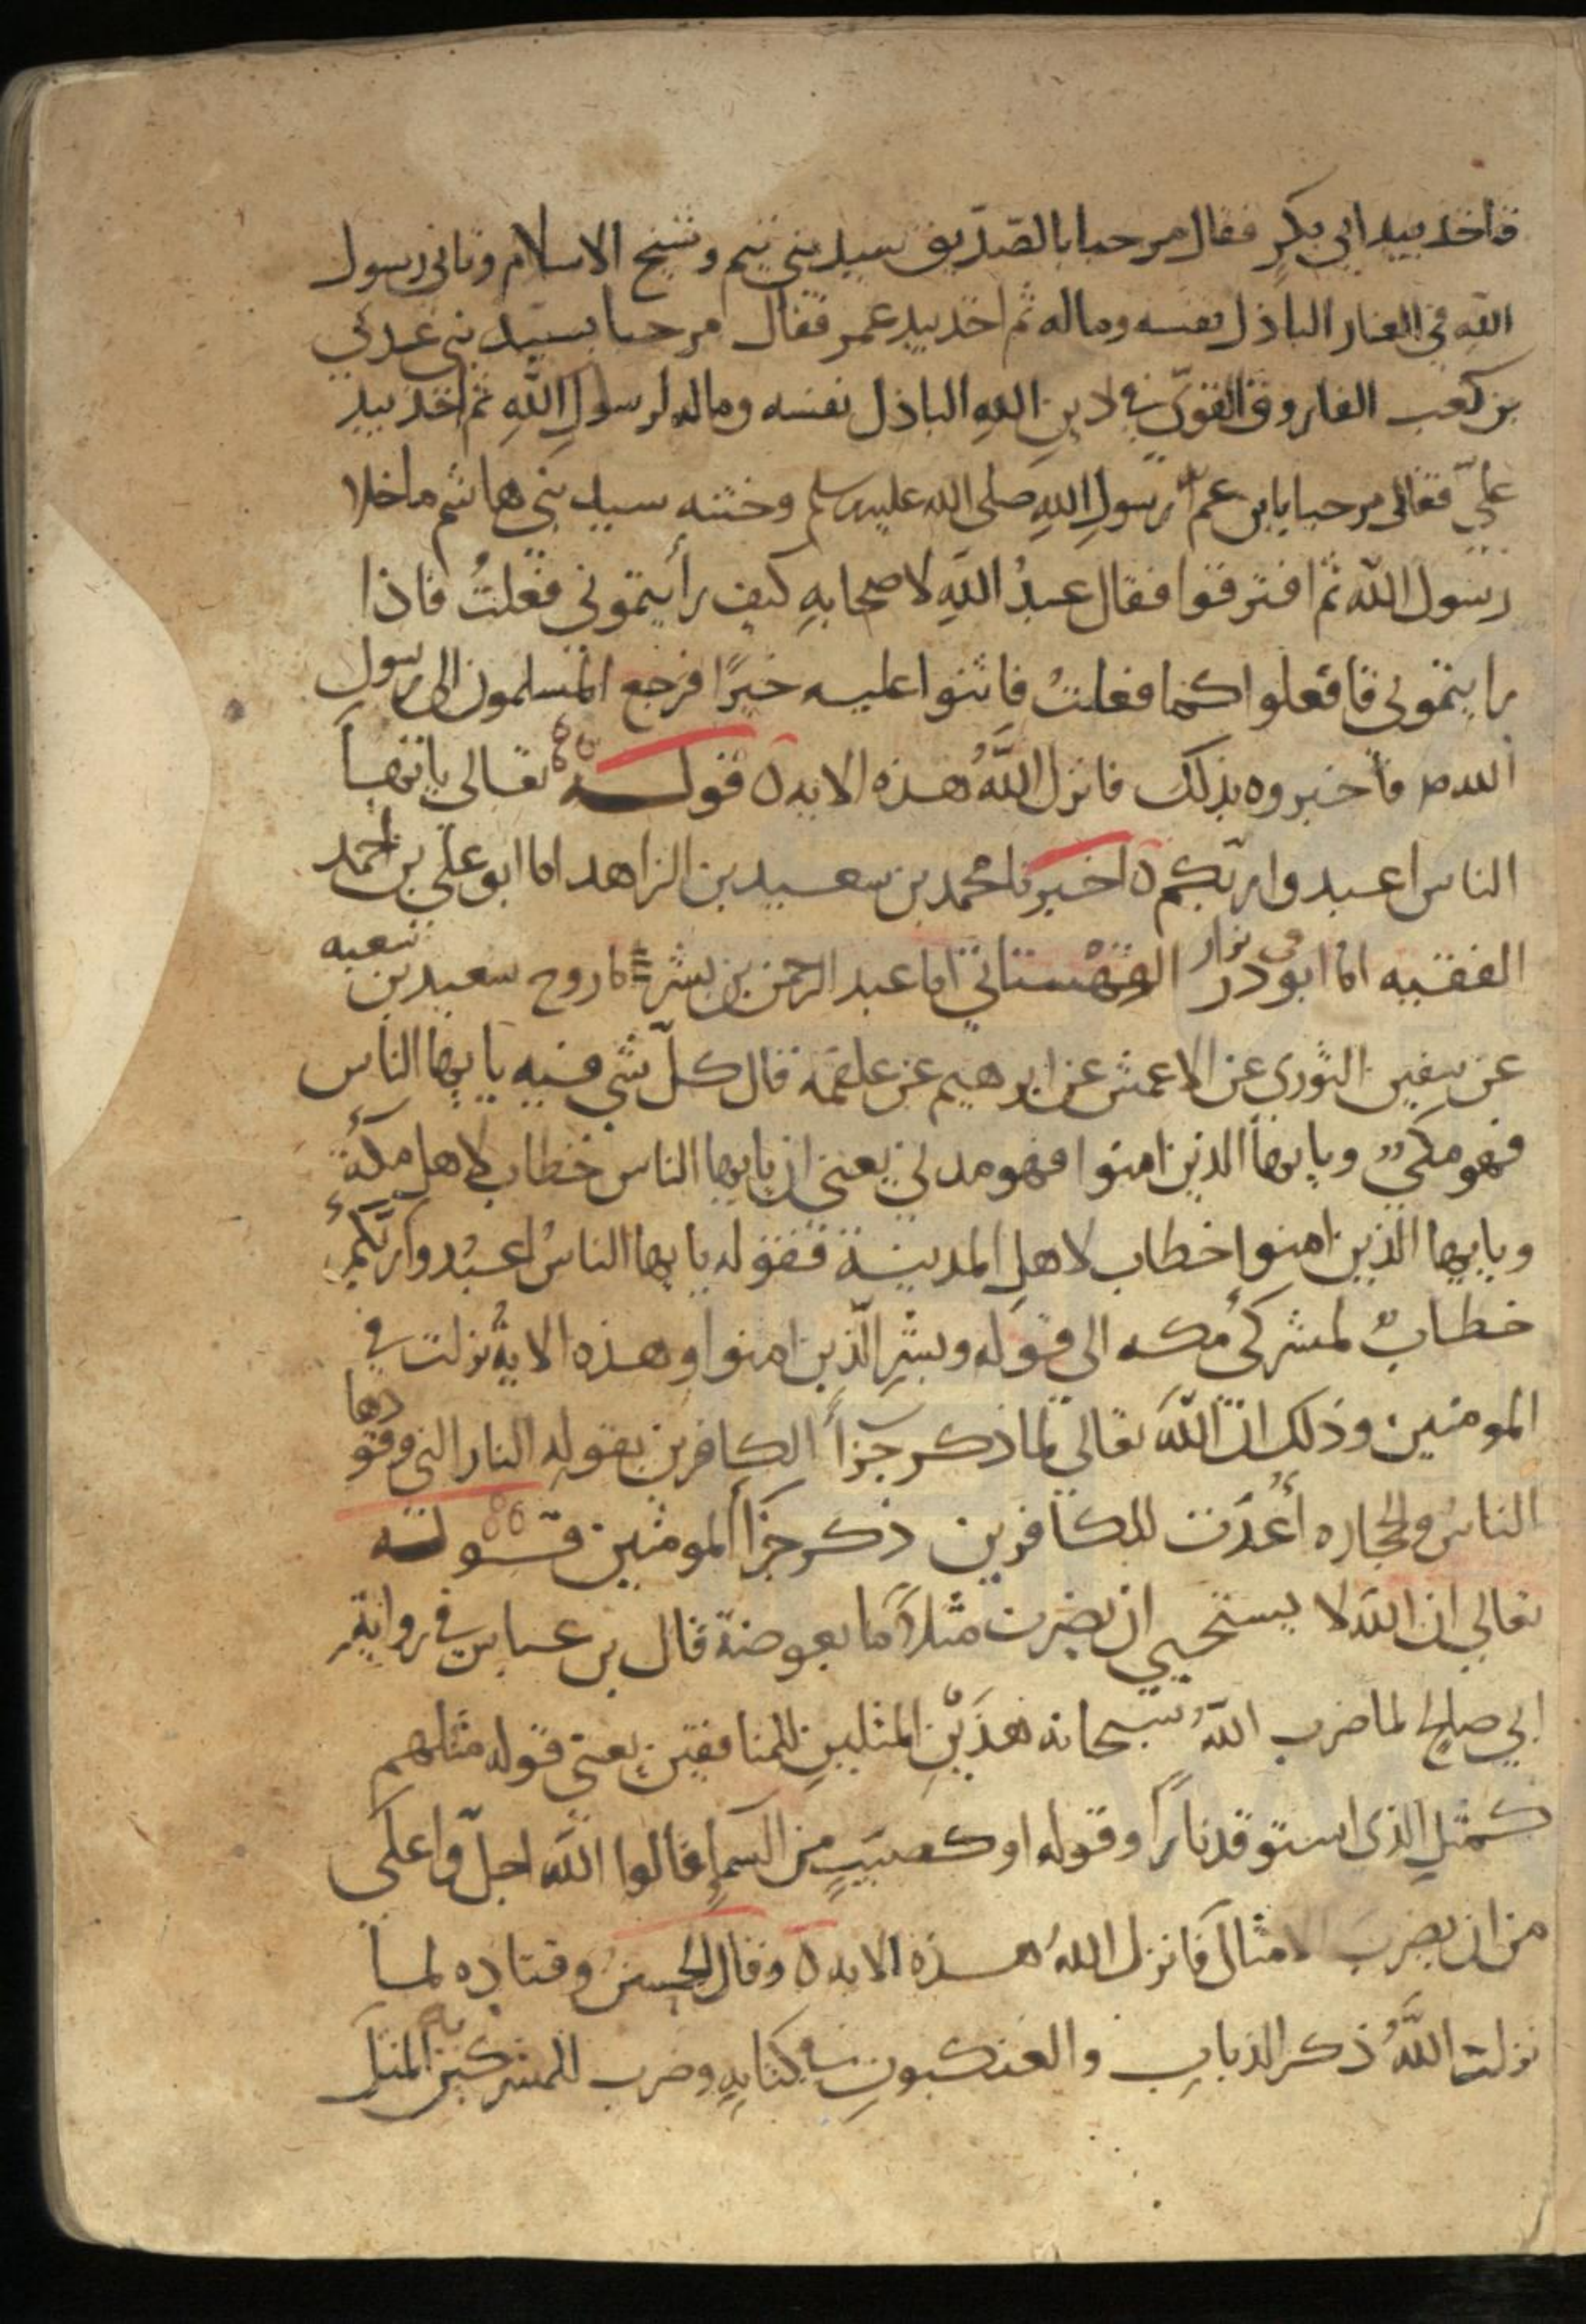 فاخذ بيد ابي بكرٍ فقال مرحبا بالصّدّيق سيد بني تيم وشيخ الاسلام وثاني رسول
الله في الغار الباذل نفسه وماله ثم اخذ بيد عمر فقال مرحبا بسيّد بني عدي
بن كعب الفاروق القوّي في دين اللهِ الباذل نفسه وماله لرسولِ اللّهِ ثم اخذ بيد
عليّ فقال مرحبا بابن عم رسولِ اللهِ صلى الله عليه وسلم وختنه سيد بني هاشم ماخلا
رسول اللّه ثم افترقوا فقال عبدُ اللّهِ لاصحابهِ كيف رأيتموني فعلتُ فاذا
رايتموني فافعلوا كما فعلتُ فاثنوا عليه خيرًا فرجع المسلمون الى رسول
الله ص فاخبروه بذلك فانزل اللّهُ هذه الايه ه قوله تعالى ياايها
الناس اعبدوا ربّكم ه اخبرنا محمد بن سعيد بن الزاهد انا ابو علي بن احمد
الفقيه انا ابو ذر القهستاني انا عبد الرحمن بن بشر نا روح سعيد بن شعبه
عن سفين الثوري عن الاعمش عن ابرهيم عن علقمه قال كلّ شي فيه ياايها الناس
فهو مكيٌ وياايها الذين امنوا فهو مدني يعني ان ياايها الناس خطاب لاهل مكة
وياايها الذين امنوا خطاب لاهل المدينة فقوله ياايها الناسُ اعبُدوا ربّكم
خطابٌ لمشركي مكه الى قوله وبشّرِ الّذين امنوا وهذه الايةُ نزلت في
المومنين وذلك انّ اللّهَ تعالي لما ذكر جزاَ الكافرين بقوله النار التي وقودها
الناس والحجاره أُعدّت للكافرين ذكر جزاَ المومنين قوله
تعالي ان اللّه لا يستحيي ان يضرب مثلاً ما بعوضة قال بن عباس في رواية
ابي صالح لما ضرب اللّهُ سبحانه هذَيْنِ المثلينِ للمنافقين يعني قوله مثلهم
كمثلِ الذي استوقد ناراً وقوله او كصيّبٍ من السماءِ قالوا اللّه اجلّ واعلى
من ان يضربَ الامثالَ فانزل اللهُ هذه الايه ه وقال الحسن وقتاده لما
نزلت اللّهُ ذكر الذبابِ والعنكبوتِ في كتابهِ وضرب للمشركين به المثل